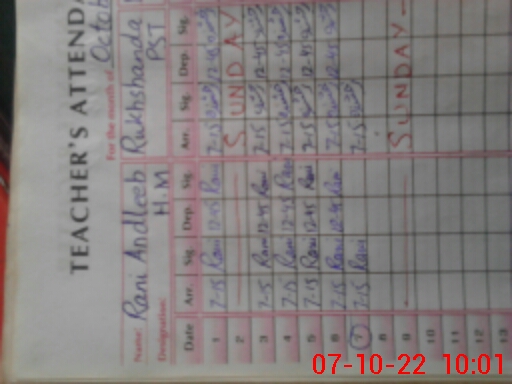 TEACHER'S ATTENDA
For the month of Octob
Name: Rani Andleeb Rukhshanda
Designation: H.M PST
Date Arr. Sig. Dep. Sig. Arr. Sig. Dep. Sig.
1 7-15 Rani 12-45 Rani 7-15 12-45
2 SUNDAY
3 7-15 Rani 12-45 Rani 7-15 12-45
4 7-15 Rani 12-45 Rani 7-15 12-45
5 7-15 Rani 12-45 Rani 7-15 12-45
6 7-15 Rani 12-45 Rani 7-15 12-45
7 7-15 Rani 7-15
8
9 SUNDAY
10
11
12
13
07-10-22 10:01